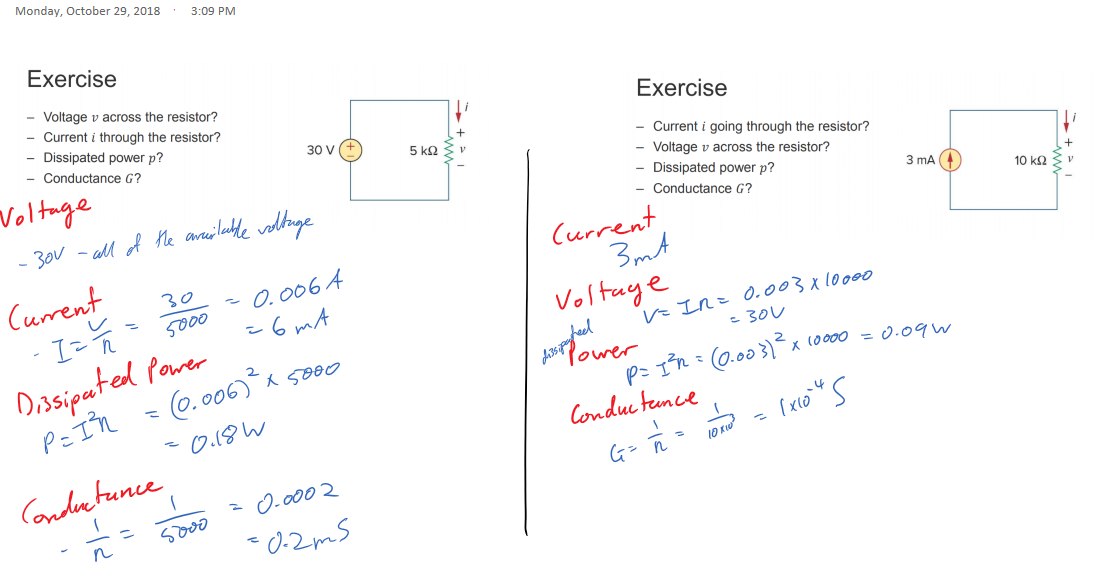 Monday, October 29, 2018 · 3:09 PM
Exercise
– Voltage v across the resistor?
– Current i through the resistor?
– Dissipated power p?
– Conductance G?
30 V
+
–
5 kΩ
i
+
v
–
Voltage
- 30V - all of the available voltage
Current
- I = V/r = 30/5000 = 0.006 A
= 6 mA
Dissipated Power
P = I²r = (0.006)² x 5000
= 0.18W
Conductance
- 1/r = 1/5000 = 0.0002
= 0.2mS
Exercise
– Current i going through the resistor?
– Voltage v across the resistor?
– Dissipated power p?
– Conductance G?
3 mA
10 kΩ
i
+
v
–
Current
3mA
Voltage
V = Ir = 0.003 x 10000
= 30V
dissipated
Power
P = I²r = (0.003)² x 10000 = 0.09W
Conductance
G = 1/r = 1/10x10³ = 1x10⁻⁴ S